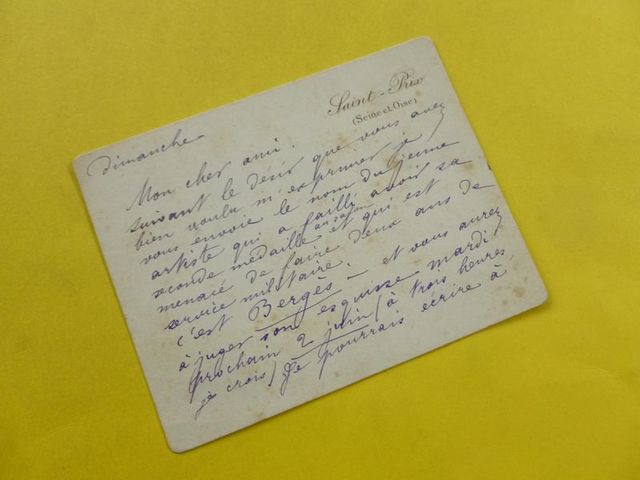 Saint-Prix
(Seine-et-Oise)
dimanche
Mon cher ami.
suivant le désir que vous avez
bien voulu m'exprimer je
vous envoie le nom du jeune
artiste qui a failli avoir sa
seconde médaille au salon et qui est
menacé de faire deux ans de
service militaire.
c'est Bergès — et vous aurez
à juger son esquisse mardi
prochain 2 juin (à trois heures
je crois) Je pourrais écrire à